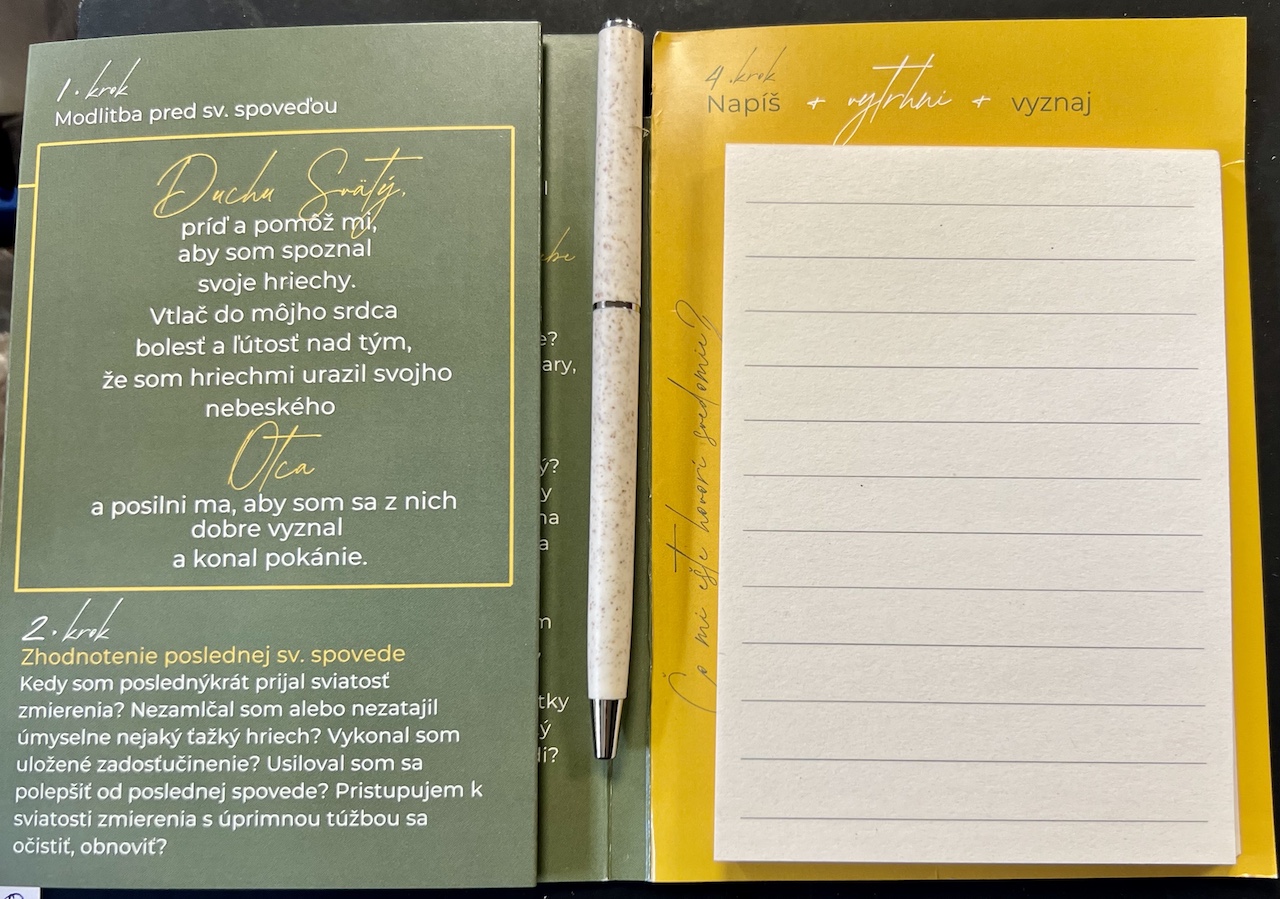 1. krok
Modlitba pred sv. spoveďou
Duchu Svätý,
príď a pomôž mi,
aby som spoznal
svoje hriechy.
Vtlač do môjho srdca
bolesť a ľútosť nad tým,
že som hriechmi urazil svojho
nebeského
Otca
a posilni ma, aby som sa z nich
dobre vyznal
a konal pokánie.
2. krok
Zhodnotenie poslednej sv. spovede
Kedy som poslednýkrát prijal sviatosť
zmierenia? Nezamlčal som alebo nezatajil
úmyselne nejaký ťažký hriech? Vykonal som
uložené zadosťučinenie? Usiloval som sa
polepšiť od poslednej spovede? Pristupujem k
sviatosti zmierenia s úprimnou túžbou sa
očistiť, obnoviť?
4. krok
Napíš + vytrhni + vyznaj
Čo mi ešte hovorí svedomie?